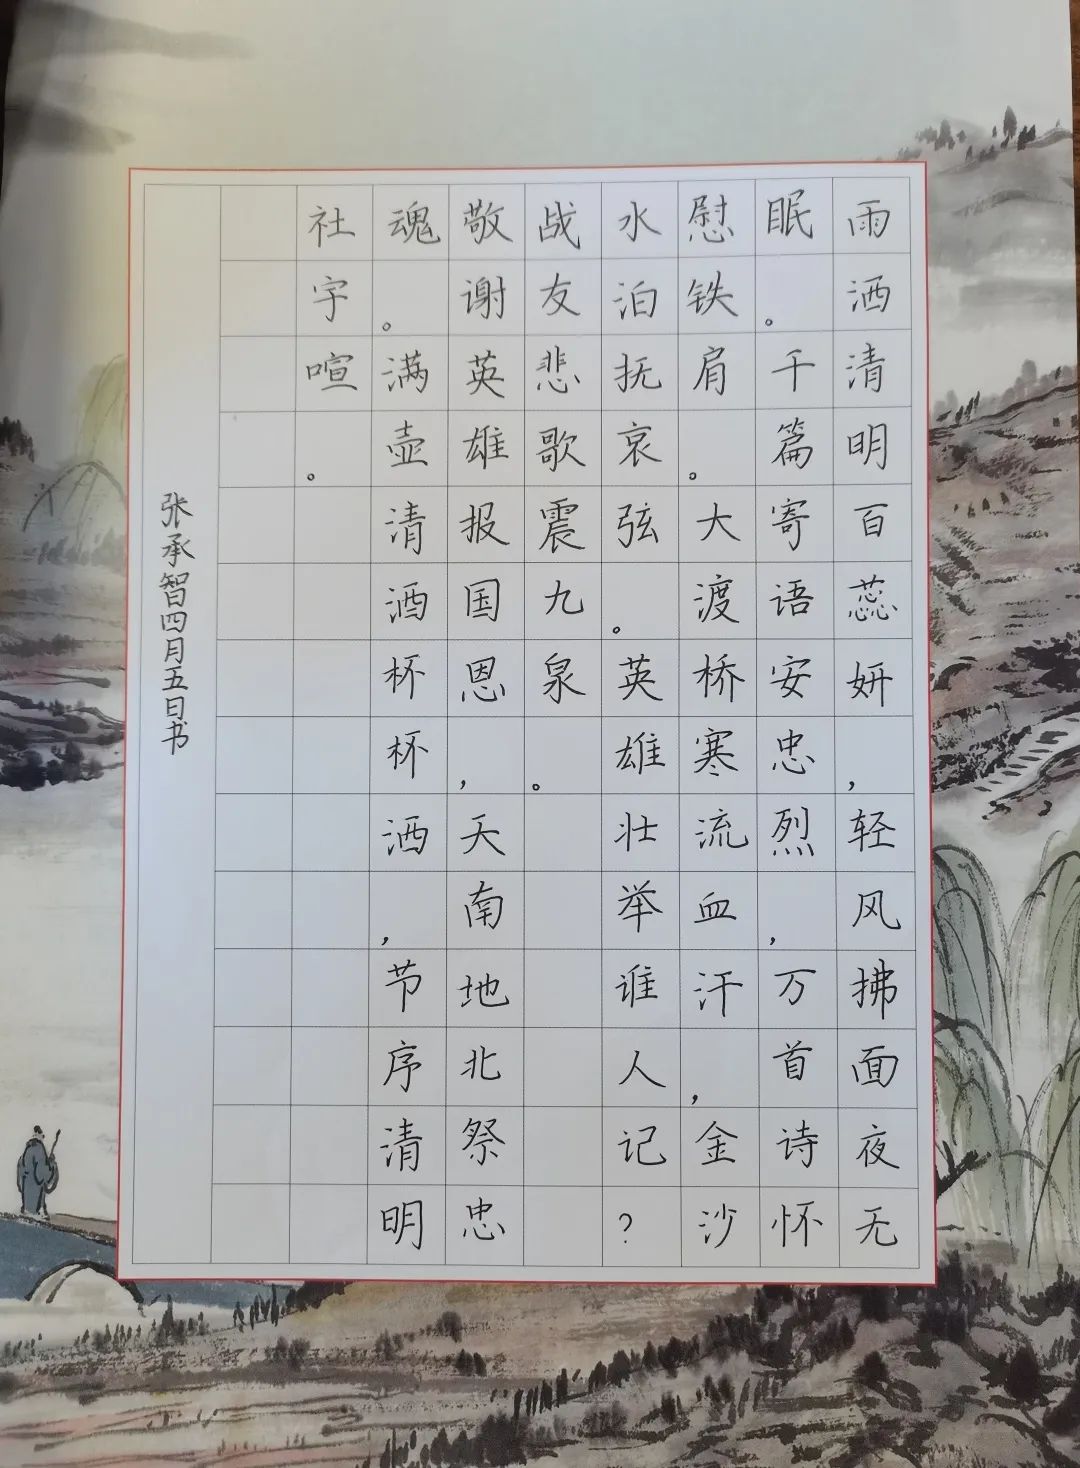 雨洒清明百蕊妍，轻风拂面夜无
眠。千篇寄语安忠烈，万首诗怀
慰铁肩。大渡桥寒流血汗，金沙
水泊抚哀弦。英雄壮举谁人记？
战友悲歌震九泉。
敬谢英雄报国恩，天南地北祭忠
魂。满壶清酒杯杯洒，节序清明
社宇喧。
张承智四月五日书